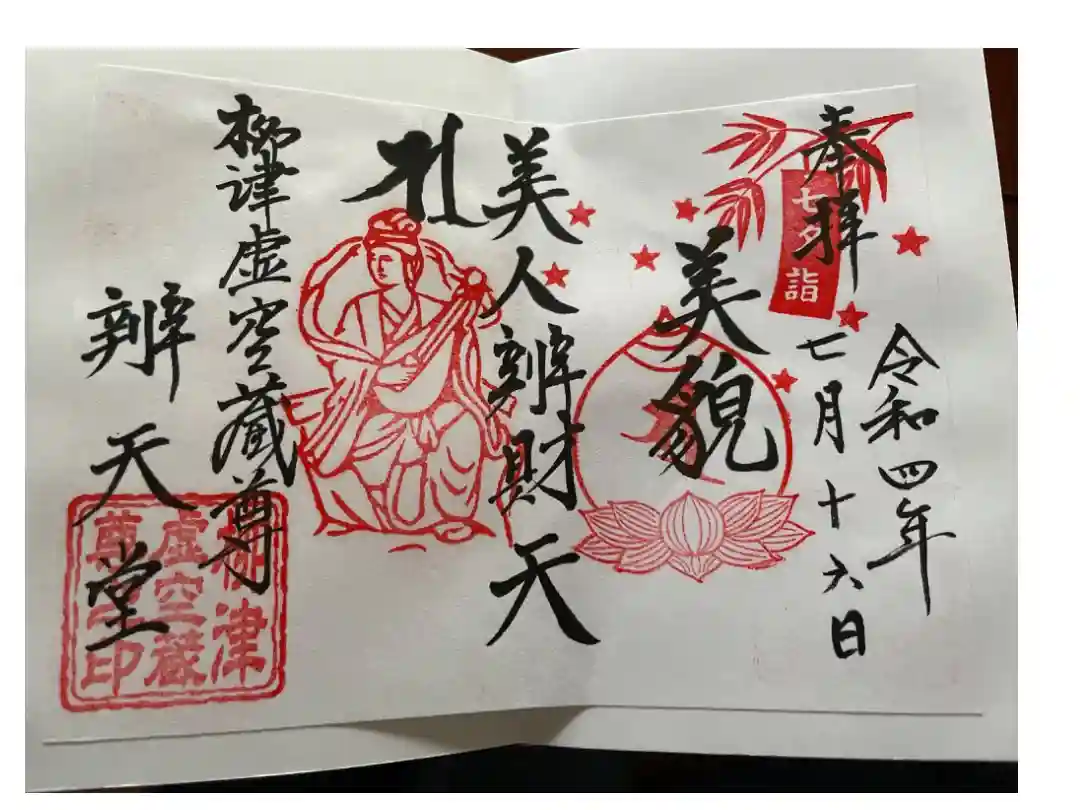 奉拝
七夕詣
令和四年
七月十六日
美貌
美人辨財天
柳津虚空蔵尊
辨天堂
柳津
虚空蔵
尊之印